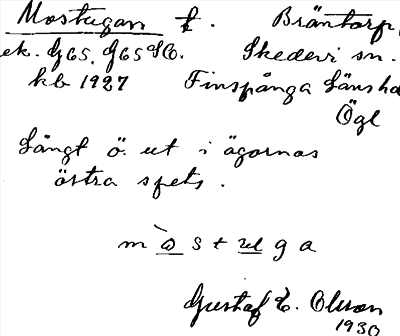 Mostugan t. Bräntorp,
ek. G65, f65 SO. Skedevi sn.
kb 1927 Finspånga länshd
Ögl
Långt ö. ut i ägornas
östra spets.
m o s t u g a
Gustaf E. Olsson
1930